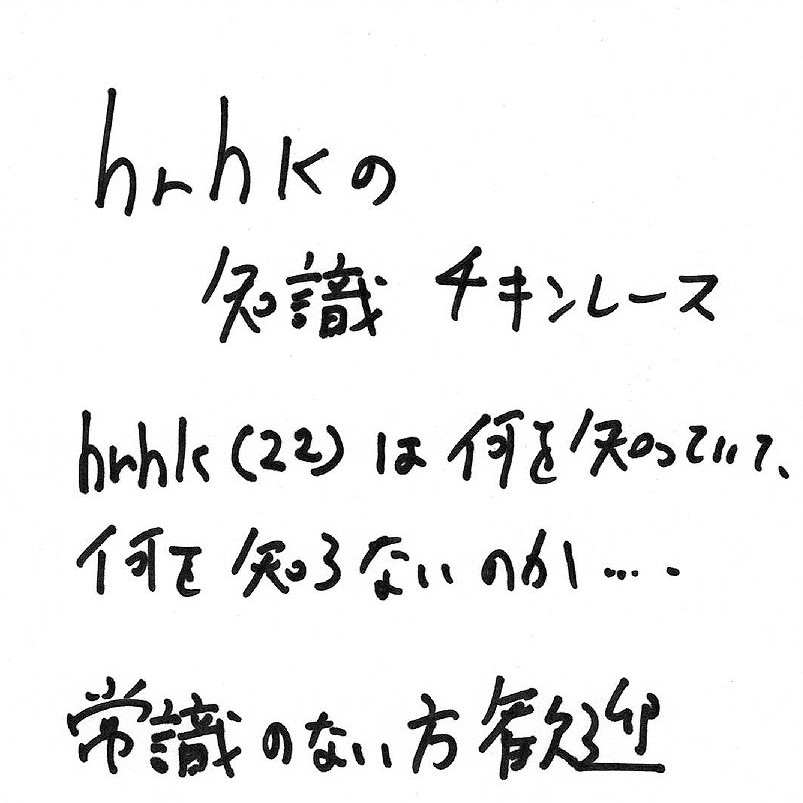 hrhkの
知識 チキンレース
hrhk(22)は何を知っていて、
何を知らないのか‥‥.
常識のない方歓迎